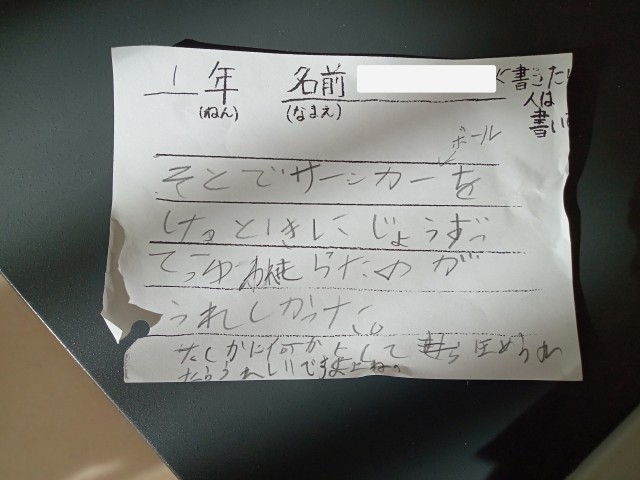 1年 名前 書いたい
(ねん) (なまえ) 人は
書い
ボール
そとでサーシカーを
けるときにじょうずっ
てゆわれたのが
うれしかった。
たしかに何かをして ほめられ
たらうれしいですよね。